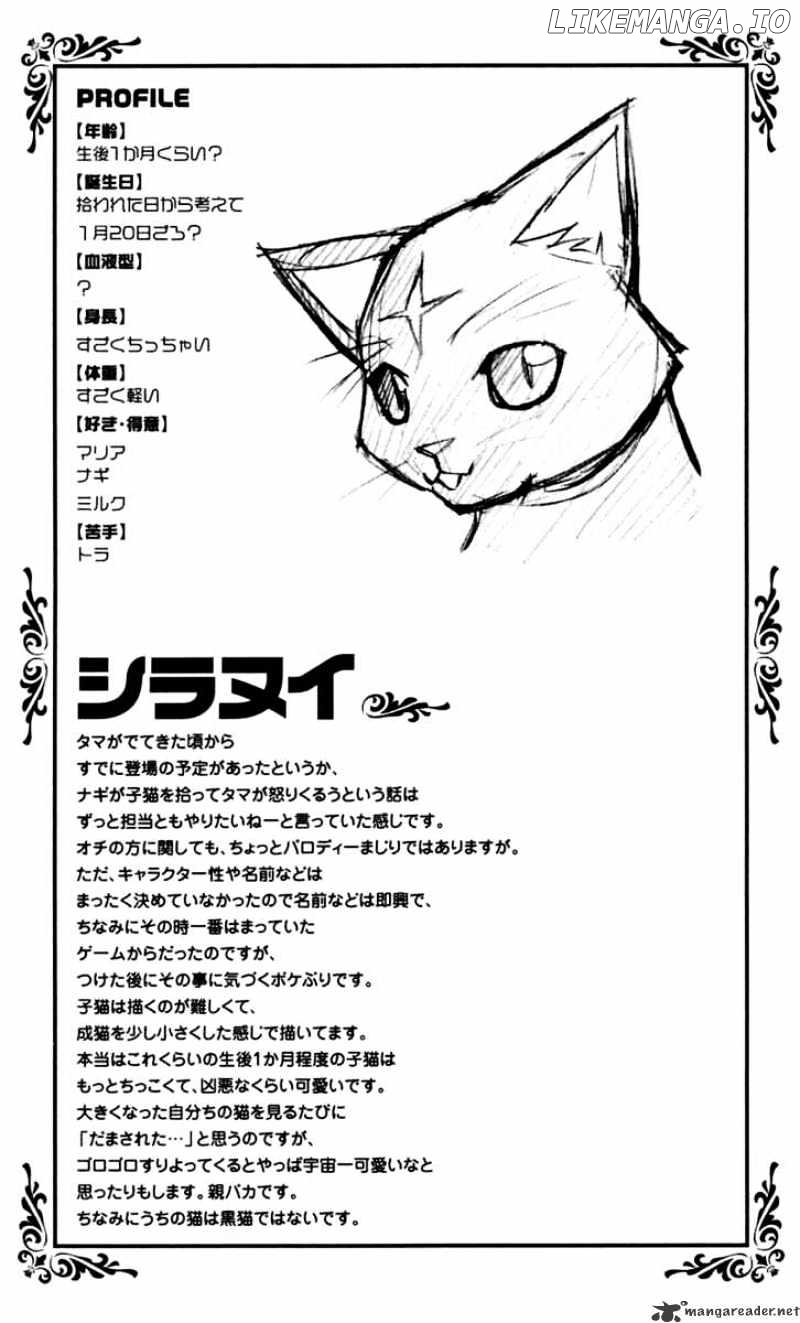 LIKEMANGA.IO
PROFILE
【年齢】
生後1か月くらい?
【誕生日】
拾われた日から考えて
1月20日ごろ?
【血液型】
?
【身長】
すごくちっちゃい
【体重】
すごく軽い
【好き・得意】
マリア
ナギ
ミルク
【苦手】
トラ
シラヌイ
タマがでてきた頃から
すでに登場の予定があったというか、
ナギが子猫を拾ってタマが怒りくるうという話は
ずっと担当ともやりたいねーと言っていた感じです。
オチの方に関しても、ちょっとパロディーまじりではありますが。
ただ、キャラクター性や名前などは
まったく決めていなかったので名前などは即興で、
ちなみにその時一番はまっていた
ゲームからだったのですが、
つけた後にその事に気づくボケぶりです。
子猫は描くのが難しくて、
成猫を少し小さくした感じで描いてます。
本当はこれくらいの生後1か月程度の子猫は
もっとちっこくて、凶悪なくらい可愛いです。
大きくなった自分ちの猫を見るたびに
「だまされた…」と思うのですが、
ゴロゴロすりよってくるとやっぱ宇宙一可愛いなと
思ったりもします。親バカです。
ちなみにうちの猫は黒猫ではないです。
mangareader.net